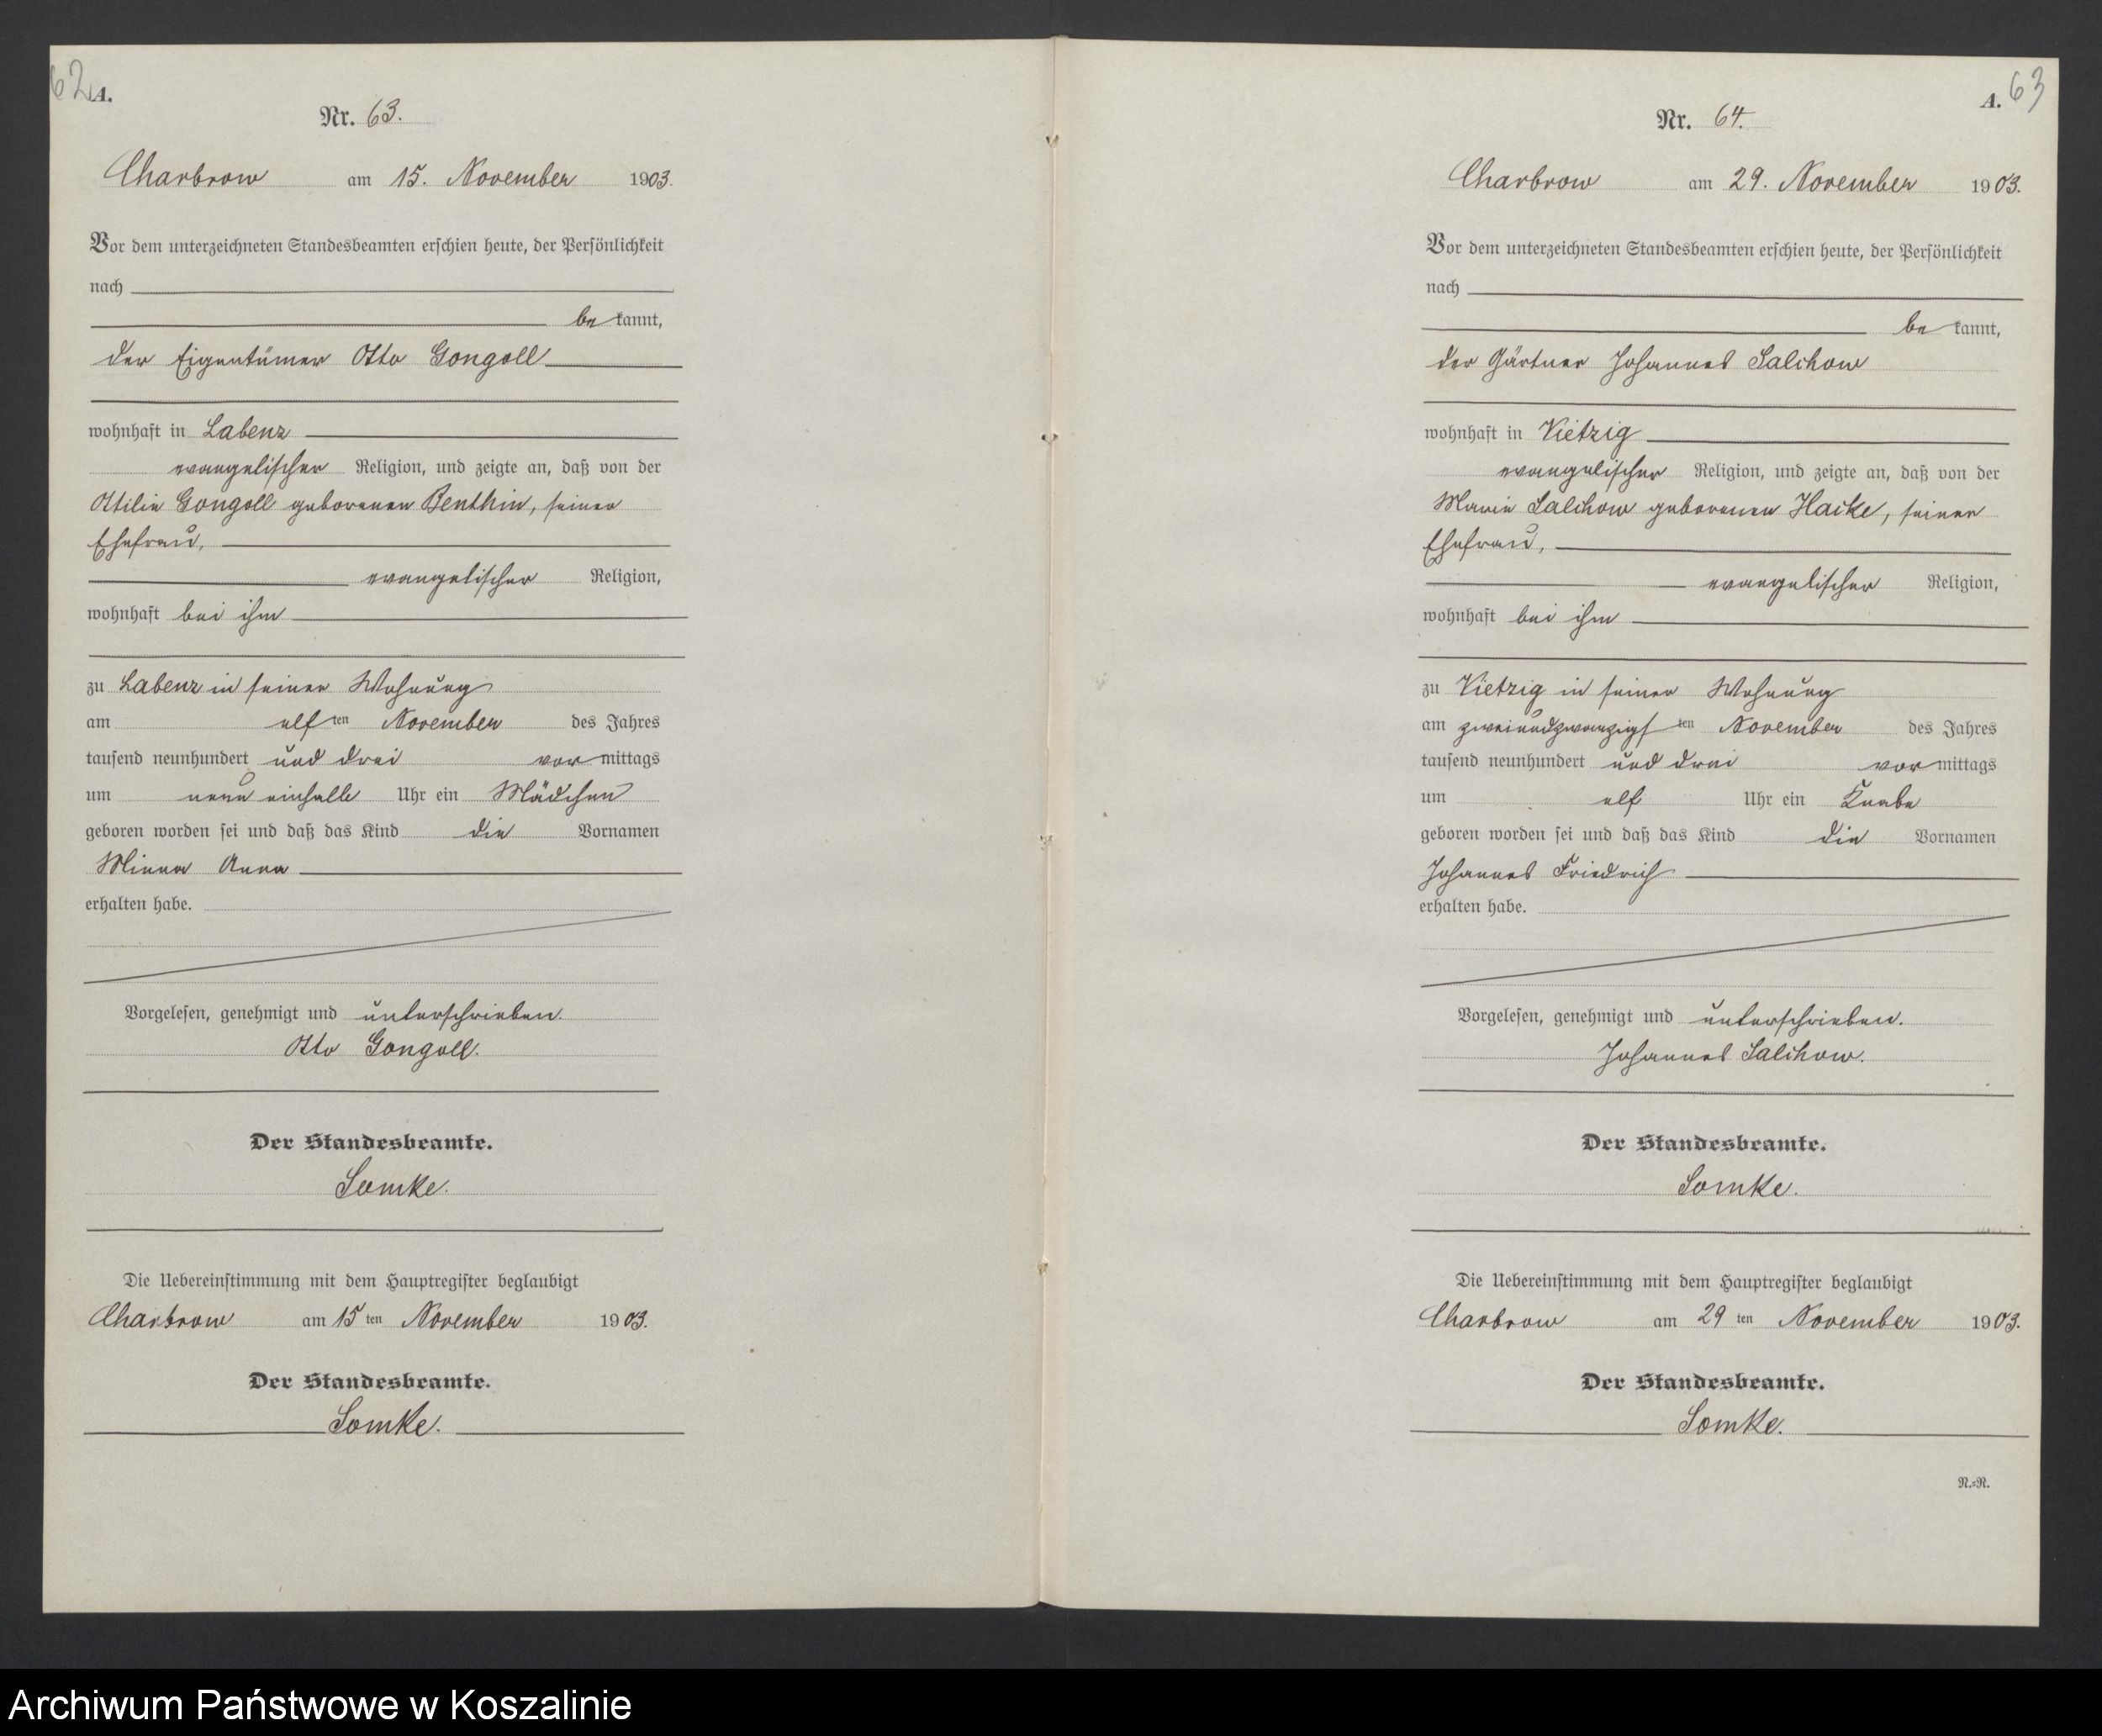 62
A.
Nr. 63.
Charbrow am 15. November 1903.
Vor dem unterzeichneten Standesbeamten erschien heute, der Persönlichkeit
nach
be kannt,
der Eigentümer Otto Gongoll
wohnhaft in Labenz
evangelischer Religion, und zeigte an, daß von der
Ottilie Gongoll geborenen Benthin, seiner
Ehefrau,
evangelischer Religion,
wohnhaft bei ihm
zu Labenz in seiner Wohnung
am elf ten November des Jahres
tausend neunhundert und drei vor mittags
um neun einhalb Uhr ein Mädchen
geboren worden sei und daß das Kind die Vornamen
Minna Anna
erhalten habe.
Vorgelesen, genehmigt und unterschrieben.
Otto Gongoll.
Der Standesbeamte.
Somke.
Die Uebereinstimmung mit dem Hauptregister beglaubigt
Charbrow am 15 ten November 1903.
Der Standesbeamte.
Somke.
A. 63
Nr. 64.
Charbrow am 29. November 1903.
Vor dem unterzeichneten Standesbeamten erschien heute, der Persönlichkeit
nach
be kannt,
der Gärtner Johannes Salchow
wohnhaft in Vietzig
evangelischer Religion, und zeigte an, daß von der
Marie Salchow geborenen Hacke, seiner
Ehefrau,
evangelischer Religion,
wohnhaft bei ihm
zu Vietzig in seiner Wohnung
am zweiundzwanzigs ten November des Jahres
tausend neunhundert und drei vor mittags
um elf Uhr ein Knabe
geboren worden sei und daß das Kind die Vornamen
Johannes Friedrich
erhalten habe.
Vorgelesen, genehmigt und unterschrieben.
Johannes Salchow.
Der Standesbeamte.
Somke.
Die Uebereinstimmung mit dem Hauptregister beglaubigt
Charbrow am 29 ten November 1903.
Der Standesbeamte.
Somke.
N.=R.
Archiwum Państwowe w Koszalinie